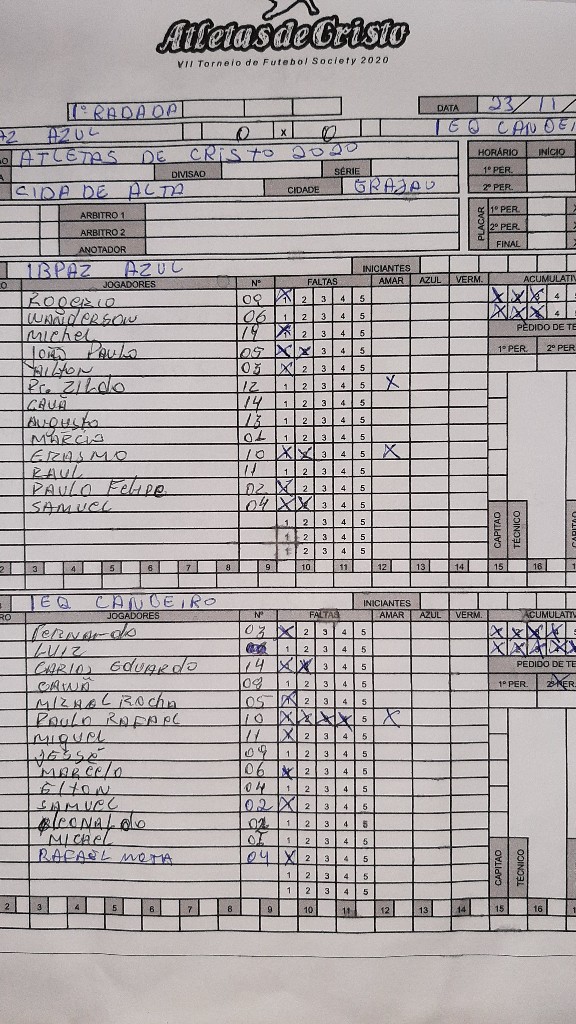 Atletas de Cristo
VII Torneio de Futebol Society 2020
1ª RADADA DATA 23/11/
AZ AZUL 0 x 0 IEQ CANDEI
ATLETAS DE CRISTO 2020 HORÁRIO INÍCIO
DIVISAO SÉRIE 1º PER.
CIDADE ALTA CIDADE GRAJAU 2º PER.
ARBITRO 1 PLACAR 1º PER.
ARBITRO 2 2º PER.
ANOTADOR FINAL
IBPAZ AZUL INICIANTES
JOGADORES Nº FALTAS AMAR AZUL VERM. ACUMULATI
ROGERIO 09 X 2 3 4 5 X X X 4
WANDERSON 06 1 2 3 4 5 X X X 4
Michel 19 X 2 3 4 5 PEDIDO DE TE
JOÃO PAULO 05 X X 3 4 5 1º PER. 2º PER.
AILTON 03 X 2 3 4 5
Pr. ZILDO 12 1 2 3 4 5 X
CAUÃ 14 1 2 3 4 5
AUGUSTO 13 1 2 3 4 5
MARCIO 01 1 2 3 4 5
ERASMO 10 X X 3 4 5 X
RAUL 11 1 2 3 4 5
PAULO Felipe 02 X 2 3 4 5
SAMUEL 04 X X 3 4 5
1 2 3 4 5 CAPITAO TÉCNICO
1 2 3 4 5
1 2 3 4 5
2 3 4 5 6 7 8 9 10 11 12 13 14 15 16 17
IEQ CANDEIRO INICIANTES
JOGADORES Nº FALTAS AMAR AZUL VERM. ACUMULATIV
Fernando 03 X 2 3 4 5 X X X X
LUIZ 1 2 3 4 5 X X X X X
CARLOS EDUARDO 14 X X 3 4 5 PEDIDO DE TE
CAUÃ 08 1 2 3 4 5 1º PER. 2º PER.
MIZAAL ROCHA 05 X 2 3 4 5
PAULO RAFAEL 10 X X X X 5 X
MIGUEL 11 X 2 3 4 5
JESSÉ 09 1 2 3 4 5
MARCELO 06 X 2 3 4 5
ELTON 04 1 2 3 4 5
SAMUEL 02 X 2 3 4 5
1 2 3 4 5
MICAEL 01 1 2 3 4 5
RAFAEL MOTA 04 X 2 3 4 5 CAPITAO TÉCNICO
1 2 3 4 5
1 2 3 4 5
2 3 4 5 6 7 8 9 10 11 12 13 14 15 16 17